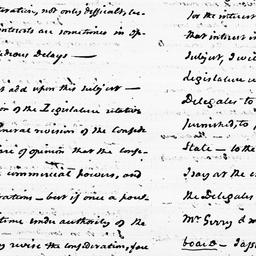 not only difficult, be
interests are sometimes in op
Delays —
add upon this subject —
of the Legislature relative
revision of the Confede
of opinion that the confe
commercial powers, and
but if once a pow
time under authority of the
revise the confederation, fou
for the interest
that interest i
subject, I wi
legislature
Delegates to
furnished, to
State — to the
I say at the
the Delegates
Mr Gerry
board